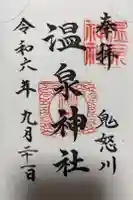 奉拝
鬼怒川
温泉神社
令和六年九月二十一日